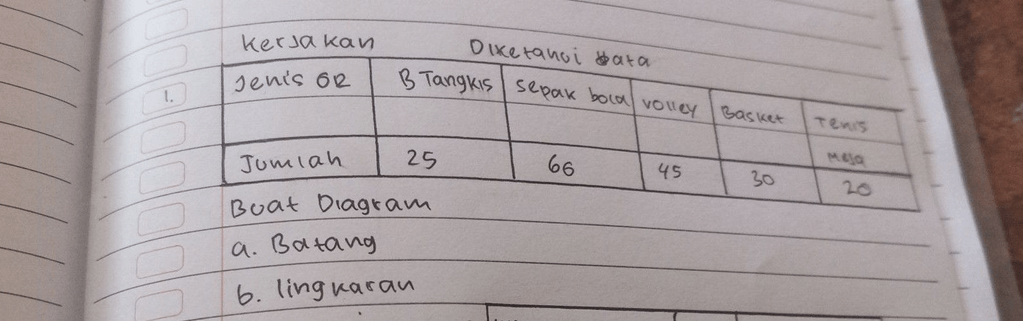 Kerjakan Diketahui Data
1. Jenis OR B Tangkis Sepak bola volley Basket Tenis
Meja
Jumlah 25 66 45 30 20
Buat Diagram
a. Batang
b. lingkaran